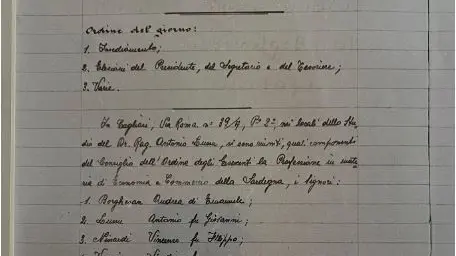 Ordine del giorno:
1. Insediamento;
2. Elezioni del Presidente, del Segretario e del Tesoriere;
3. Varie.
In Cagliari, Via Roma n° 39/4, P° 2°, nei locali dello Stu-
dio del Dr. Rag. Antonio Lussu, si sono riuniti, quali componenti
del Consiglio dell'Ordine degli Esercenti la Professione in mate-
ria di Economia e Commercio della Sardegna, i Signori:
1. Borghesan Andrea di Emanuele;
2. Lussu Antonio fu Giovanni;
3. Vincenzo fu Filippo;